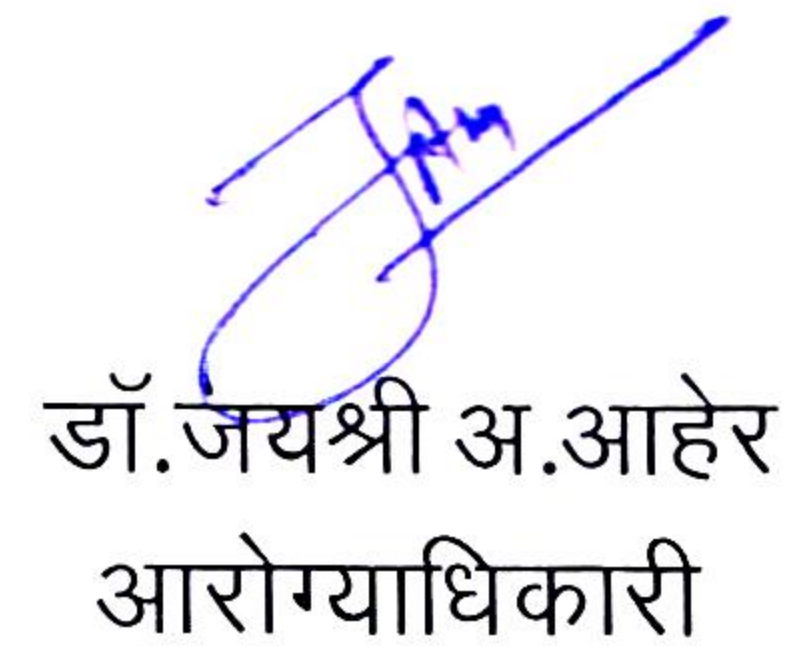 डॉ.जयश्री अ.आहेर
आरोग्याधिकारी